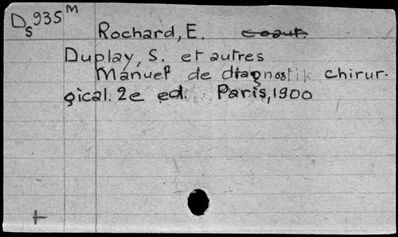 Ds935M
Rochard, E. coaut.
Duplay, S. et autres
Manuel de diagnostik chirur-
gical. 2e ed. Paris, 1900